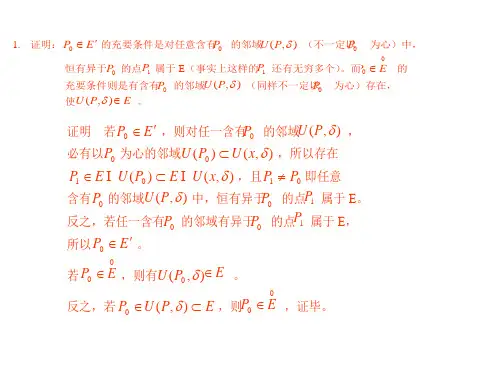 1. 证明：P₀ ∈ E′ 的充要条件是对任意含有P₀ 的邻域U(P,δ)（不一定以P₀ 为心）中，
恒有异于P₀ 的点P₁ 属于 E（事实上这样的P₁ 还有无穷多个）。而P₀ ∈ E⁰ 的
充要条件则是有含有P₀ 的邻域U(P,δ)（同样不一定以P₀ 为心）存在，
使U(P,δ) ∈ E 。
证明 若P₀ ∈ E′，则对任一含有P₀ 的邻域U(P,δ)，
必有以P₀ 为心的邻域U(P₀) ⊂ U(x,δ)，所以存在
P₁ ∈ E I U(P₀) ⊂ E I U(x,δ)，且P₁ ≠ P₀ 即任意
含有P₀ 的邻域U(P,δ) 中，恒有异于P₀ 的点P₁ 属于 E。
反之，若任一含有P₀ 的邻域有异于P₀ 的点P₁ 属于 E，
所以P₀ ∈ E′ 。
若P₀ ∈ E⁰，则有U(P₀,δ) ∈ E 。
反之，若P₀ ∈ U(P,δ) ⊂ E，则P₀ ∈ E⁰ ，证毕。